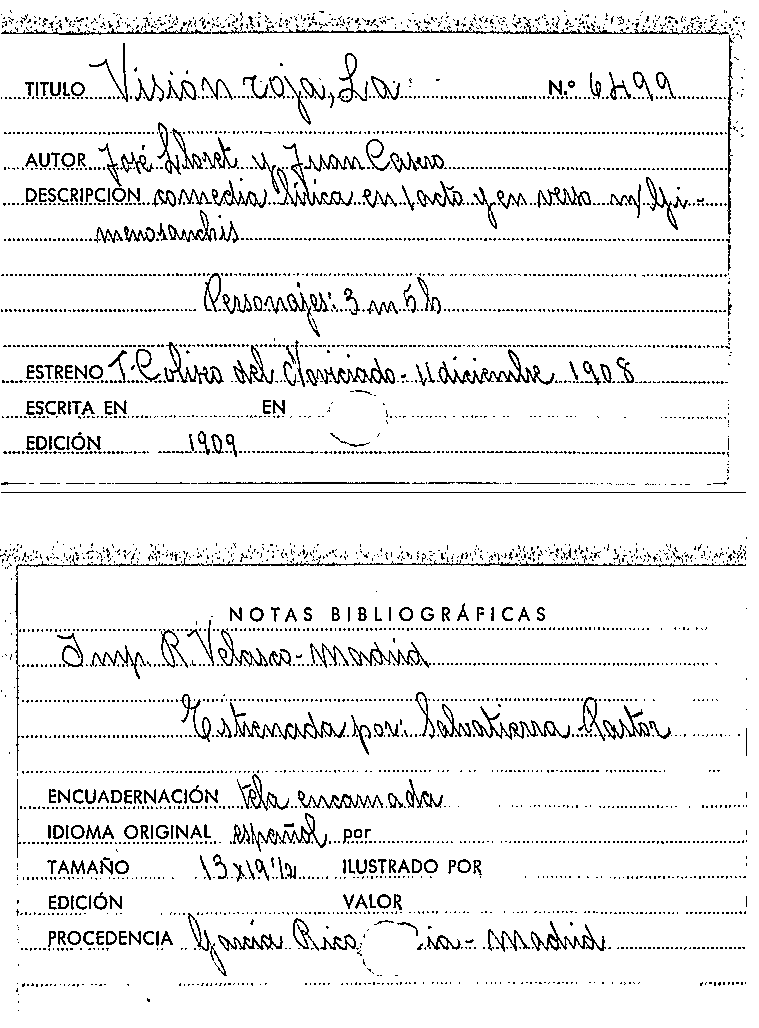 TITULO Visión roja, La N.º 6499
AUTOR José Lloret y Juan Casero
DESCRIPCION comedia lírica en 1 acto y en verso m/ Gi-
menosanchis
Personajes: 3 m 5 h
ESTRENO T. Coliseo del Noviciado - 11 diciembre 1908
ESCRITA EN EN
EDICIÓN 1909
NOTAS BIBLIOGRÁFICAS
Imp. R. Velasco - Madrid
Estrenada por: Salvatierra Pastor
ENCUADERNACIÓN tela encarnada
IDIOMA ORIGINAL español por
TAMAÑO 13x19 1/2 ILUSTRADO POR
EDICIÓN VALOR
PROCEDENCIA García Rico ia - Madrid